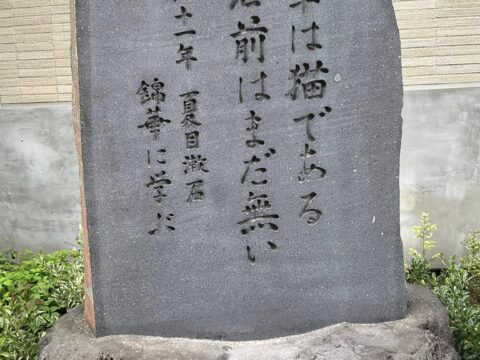 は猫である
前はまだ無い
十一年 夏目漱石
錦華に学ぶ